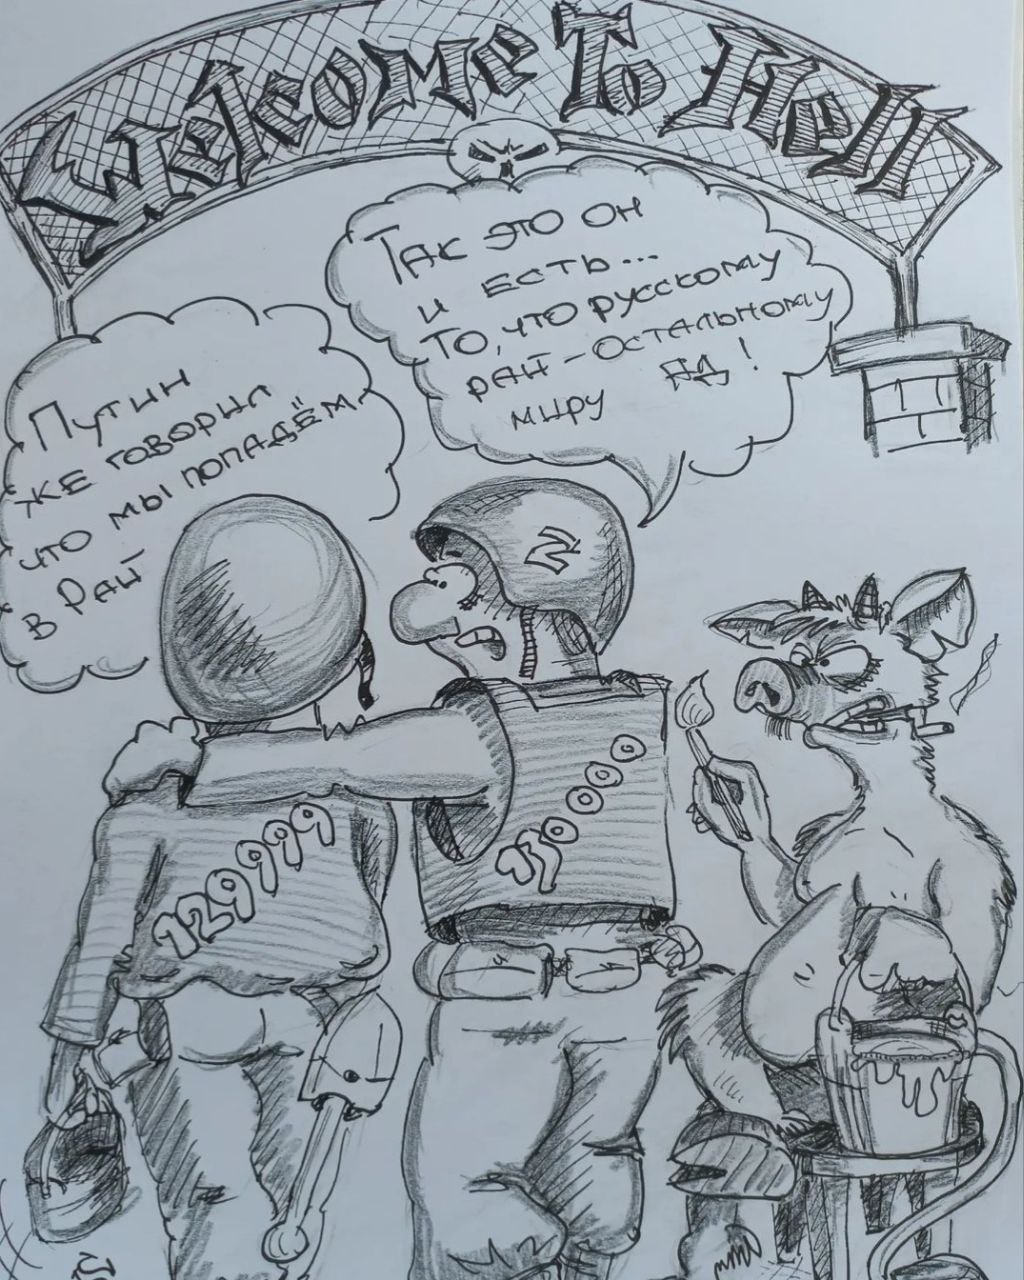 Welcome To Hell
Так это он
и есть...
То, что русскому
рай – остальному
миру ад!
Путин
же говорил
что мы попадём
в Рай
Z
129999
130000